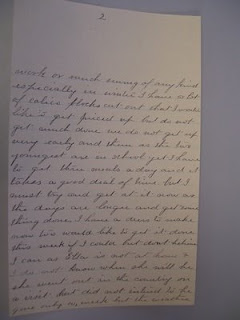 2
work or much sewing of any kind
especially are under I have a lot
of calico blocks cut out that I would
like to get pieced up but do not
get much done we do not get up
very early and then as the two
youngest are in school yet I have
to get three meals a day and it
takes a good deal of time but I
must try and get at it now as
the days are longer and get some
thing done I have a dress to make
now too would like to get it done
this week if I could but don't believe
I can as Etta is not at home &
I do not know when she will be
she went out in the country on
a visit but did not intend to be
gone only a week but the weather